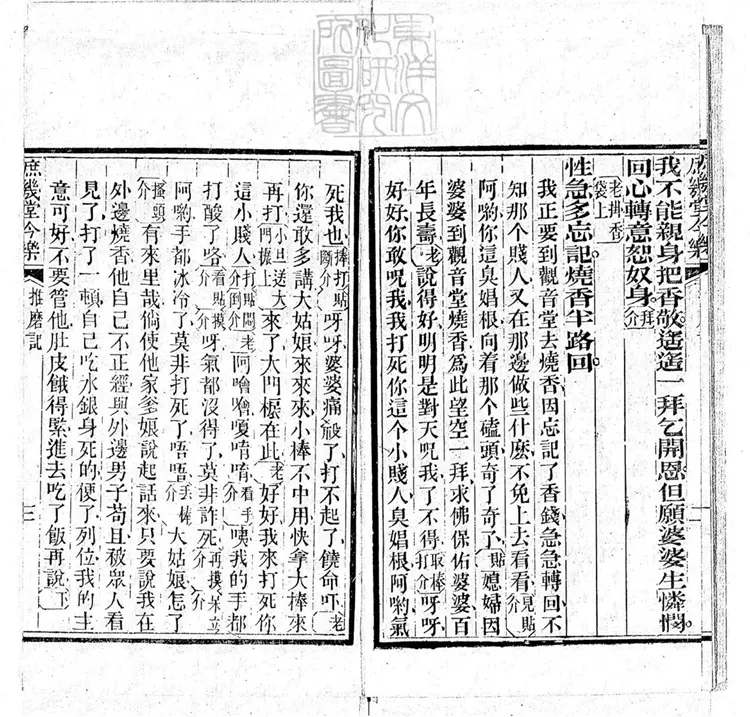 東洋文
化研究
所圖書
庶幾堂今樂
二
我不能親身把香敬遙遙一拜乞開恩但願婆婆生憐憫
回心轉意恕奴身拜介
老掛香袋上
性急多忘記燒香半路回
我正要到觀音堂去燒香因忘記了香錢急急轉回不
知那個賤人又在那邊做些什麽不免上去看看見貼介
阿喲你這臭娼根向着那個磕頭奇了奇了貼媳婦因
婆婆到觀音堂燒香爲此望空一拜求佛保佑婆婆百
年長壽老說得好明明是對天呪我了不得取棒打介呀呀
好好你敢呪我我打死你這個小賤人臭娼根阿喲氣
死我也捧打貼斷介呀呀婆婆痛殺了打不起了饒命吓老
你還敢多講大姑娘來來來小棒不中用快拿大棒來
再打小旦送大門上來了大門在此老好好我來打死你
這小賤人打貼悶倒介老阿噲噲嗄唷唷看手介咦我的手都
打酸了咯看貼摸介呀氣都沒得了莫非詐死再摸介呆立介
阿喲手都冰冷了莫非打死了唔唔手介大姑娘怎了
搖頭介有來里哉倘使他家爹娘說起話來只要說我在
外邊燒香他自己不正經與外邊男子苟且被眾人看
見了打了一頓自己吃水銀身死的便了列位我的主
意可好不要管他肚皮餓得緊進去吃了飯再說下
庶幾堂今樂
推磨記
三